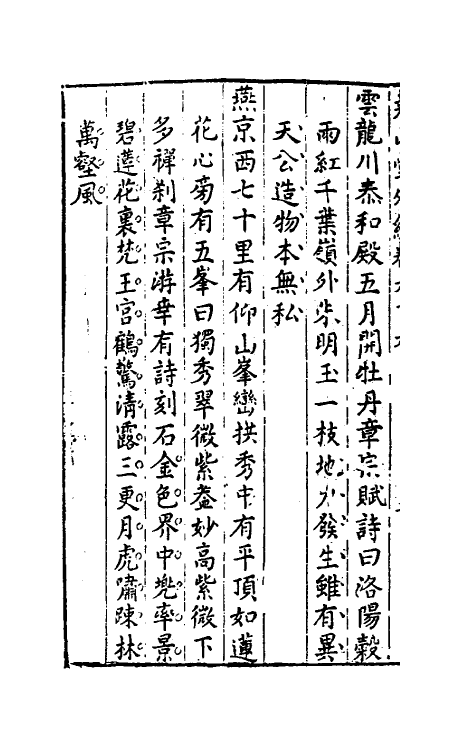 雲龍川泰和殿五月開牡丹章宗賦詩曰洛陽穀
雨紅千葉嶺外朱明玉一枝地力發生雖有異
天公造物本無私
燕京西七十里有仰山峯巒拱秀中有平頂如蓮
花心旁有五峯曰獨秀翠微紫盖妙高紫微下
多禪刹章宗游幸有詩刻石金色界中兜率景
碧蓮花裏梵王宫鶴驚清露三更月虎嘯踈林
萬壑風